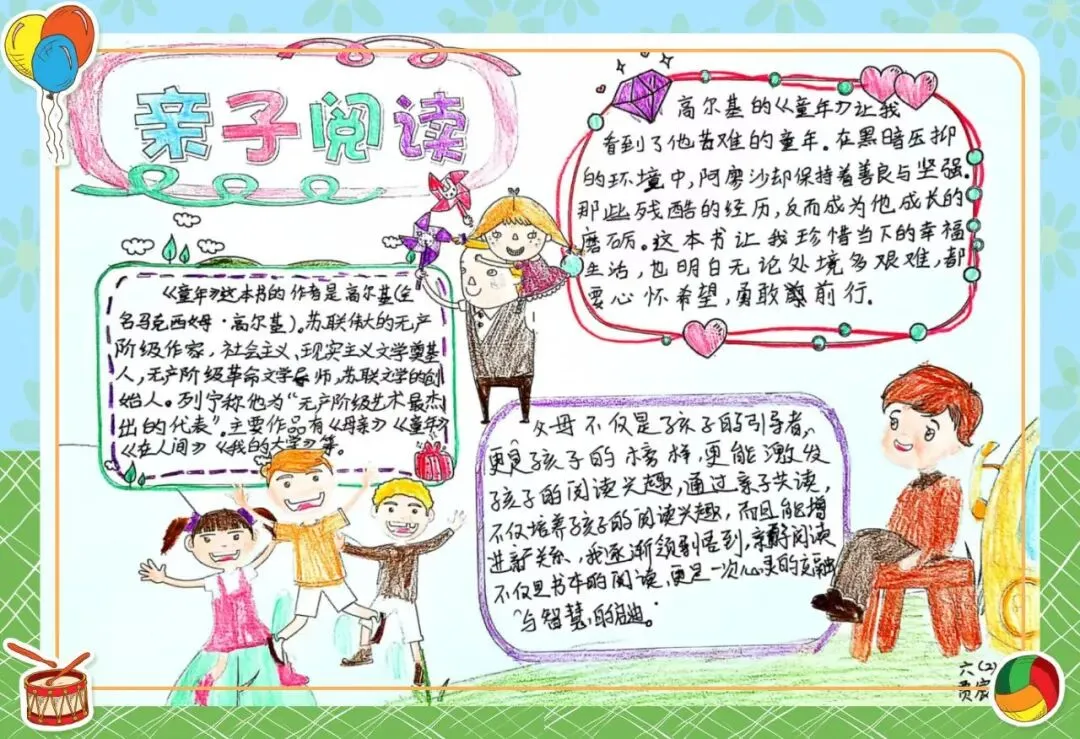 亲子阅读
高尔基的《童年》让我
看到了他苦难的童年。在黑暗压抑
的环境中,阿廖沙却保持着善良与坚强。
那些残酷的经历,反而成为他成长的
磨砺。这本书让我珍惜当下的幸福
生活,也明白无论处境多艰难,都
要心怀希望,勇敢前行。
《童年》这本书的作者是高尔基(全
名马克西姆·高尔基)。苏联伟大的无产
阶级作家,社会主义、现实主义文学奠基
人,无产阶级革命文学导师,苏联文学的创
始人。列宁称他为“无产阶级艺术最杰
出的代表”。主要作品有《母亲》《童年》
《在人间》《我的大学》等。
父母不仅是孩子的引导者,
更是孩子的榜样,更能激发
孩子的阅读兴趣,通过亲子共读,
不仅培养孩子的阅读兴趣,而且能增
进亲子关系,我逐渐领悟到,亲子阅读
不仅是书本的阅读,更是一次心灵的交融
与智慧的启迪。
六(2)
贾